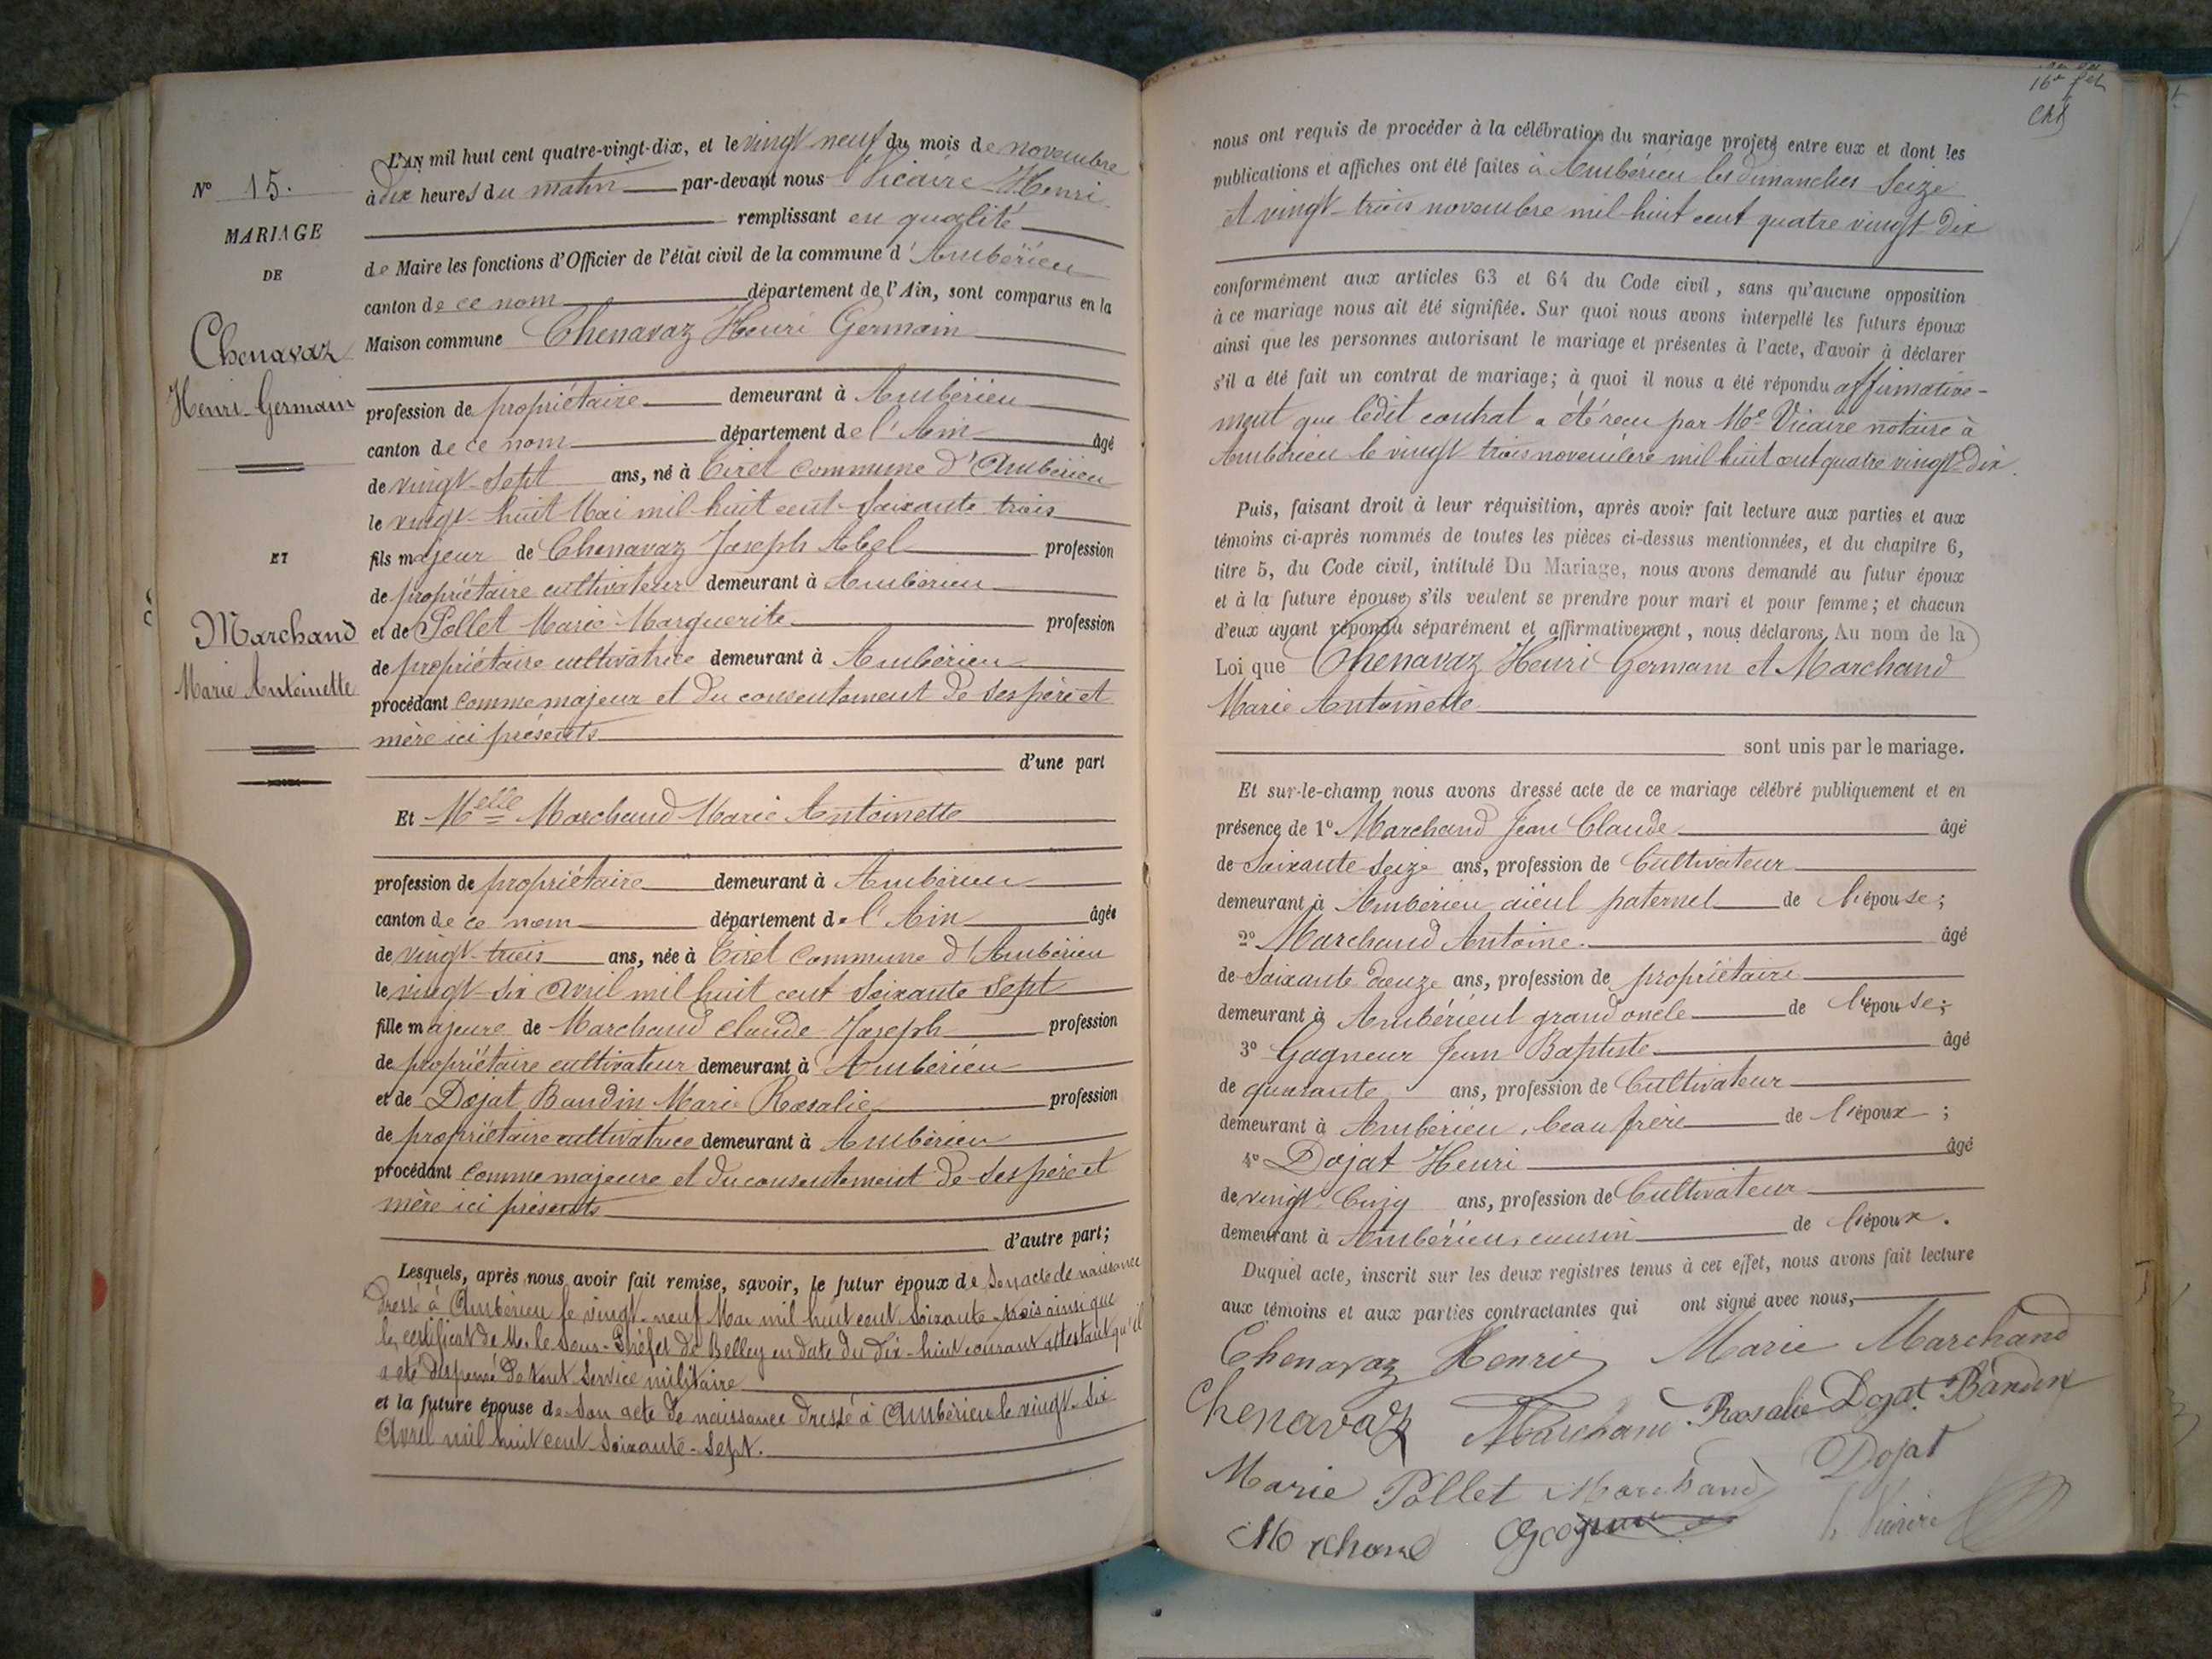 N° 15.
MARIAGE
DE
Chenavaz
Henri Germain
ET
Marchand
Marie Antoinette
L'AN mil huit cent quatre-vingt-dix, et le vingt neuf du mois de novembre
à dix heures du matin par-devant nous Vicaire Henri
remplissant en qualité
de Maire les fonctions d'Officier de l'état civil de la commune d'Ambérieu
canton de ce nom département de l'Ain, sont comparus en la
Maison commune Chenavaz Henri Germain
profession de propriétaire demeurant à Ambérieu
canton de ce nom département de l'Ain âgé
de vingt-sept ans, né à Tiret commune d'Ambérieu
le vingt-huit Mai mil huit cent soixante trois
fils majeur de Chenavaz Joseph Abel profession
de propriétaire cultivateur demeurant à Ambérieu
et de Pollet Marie Marguerite profession
de propriétaire cultivatrice demeurant à Ambérieu
procédant comme majeur et du consentement de ses père et
mère ici présents
d'une part
Et Melle Marchand Marie Antoinette
profession de propriétaire demeurant à Ambérieu
canton de ce nom département de l'Ain âgée
de vingt-trois ans, née à Tiret commune d'Ambérieu
le vingt-six Avril mil huit cent soixante sept
fille majeure de Marchand Claude Joseph profession
de propriétaire cultivateur demeurant à Ambérieu
et de Dojat Bandin Marie Rosalie profession
de propriétaire cultivatrice demeurant à Ambérieu
procédant comme majeure et du consentement de ses père et
mère ici présents
d'autre part;
Lesquels, après nous avoir fait remise, savoir, le futur époux de son acte de naissance
dressé à Ambérieu le vingt-neuf Mai mil huit cent soixante-trois ainsi que
le certificat de M. le Sous-Préfet de Belley en date du dix-huit courant attestant qu'il
a été dispensé de tout service militaire
et la future épouse de son acte de naissance dressé à Ambérieu le vingt-six
Avril mil huit cent soixante-sept.
16e
nous ont requis de procéder à la célébration du mariage projeté entre eux et dont les
publications et affiches ont été faites à Ambérieu les dimanches seize
et vingt-trois novembre mil huit cent quatre vingt dix
conformément aux articles 63 et 64 du Code civil, sans qu'aucune opposition
à ce mariage nous ait été signifiée. Sur quoi nous avons interpellé les futurs époux
ainsi que les personnes autorisant le mariage et présentes à l'acte, d'avoir à déclarer
s'il a été fait un contrat de mariage; à quoi il nous a été répondu affirmative-
ment que ledit contrat a été reçu par Me Vicaire notaire à
Ambérieu le vingt trois novembre mil huit cent quatre vingt dix.
Puis, faisant droit à leur réquisition, après avoir fait lecture aux parties et aux
témoins ci-après nommés de toutes les pièces ci-dessus mentionnées, et du chapitre 6,
titre 5, du Code civil, intitulé Du Mariage, nous avons demandé au futur époux
et à la future épouse s'ils veulent se prendre pour mari et pour femme; et chacun
d'eux ayant répondu séparément et affirmativement, nous déclarons Au nom de la
Loi que Chenavaz Henri Germain et Marchand
Marie Antoinette
sont unis par le mariage.
Et sur-le-champ nous avons dressé acte de ce mariage célébré publiquement et en
présence de 1° Marchand Jean Claude âgé
de soixante seize ans, profession de Cultivateur
demeurant à Ambérieu aïeul paternel de l'épouse;
2° Marchand Antoine âgé
de soixante douze ans, profession de propriétaire
demeurant à Ambérieu grand oncle de l'épouse;
3° Gagneur Jean Baptiste âgé
de quarante ans, profession de Cultivateur
demeurant à Ambérieu, beau frère de l'époux;
4° Dojat Henri âgé
de vingt-cinq ans, profession de Cultivateur
demeurant à Ambérieu, cousin de l'époux.
Duquel acte, inscrit sur les deux registres tenus à cet effet, nous avons fait lecture
aux témoins et aux parties contractantes qui ont signé avec nous,
Chenavaz Henri Marie Marchand
Chenavaz Marchand Rosalie Dojat Bandin
Marie Pollet Marchand Dojat
Marchand Gagneur H. Vicaire